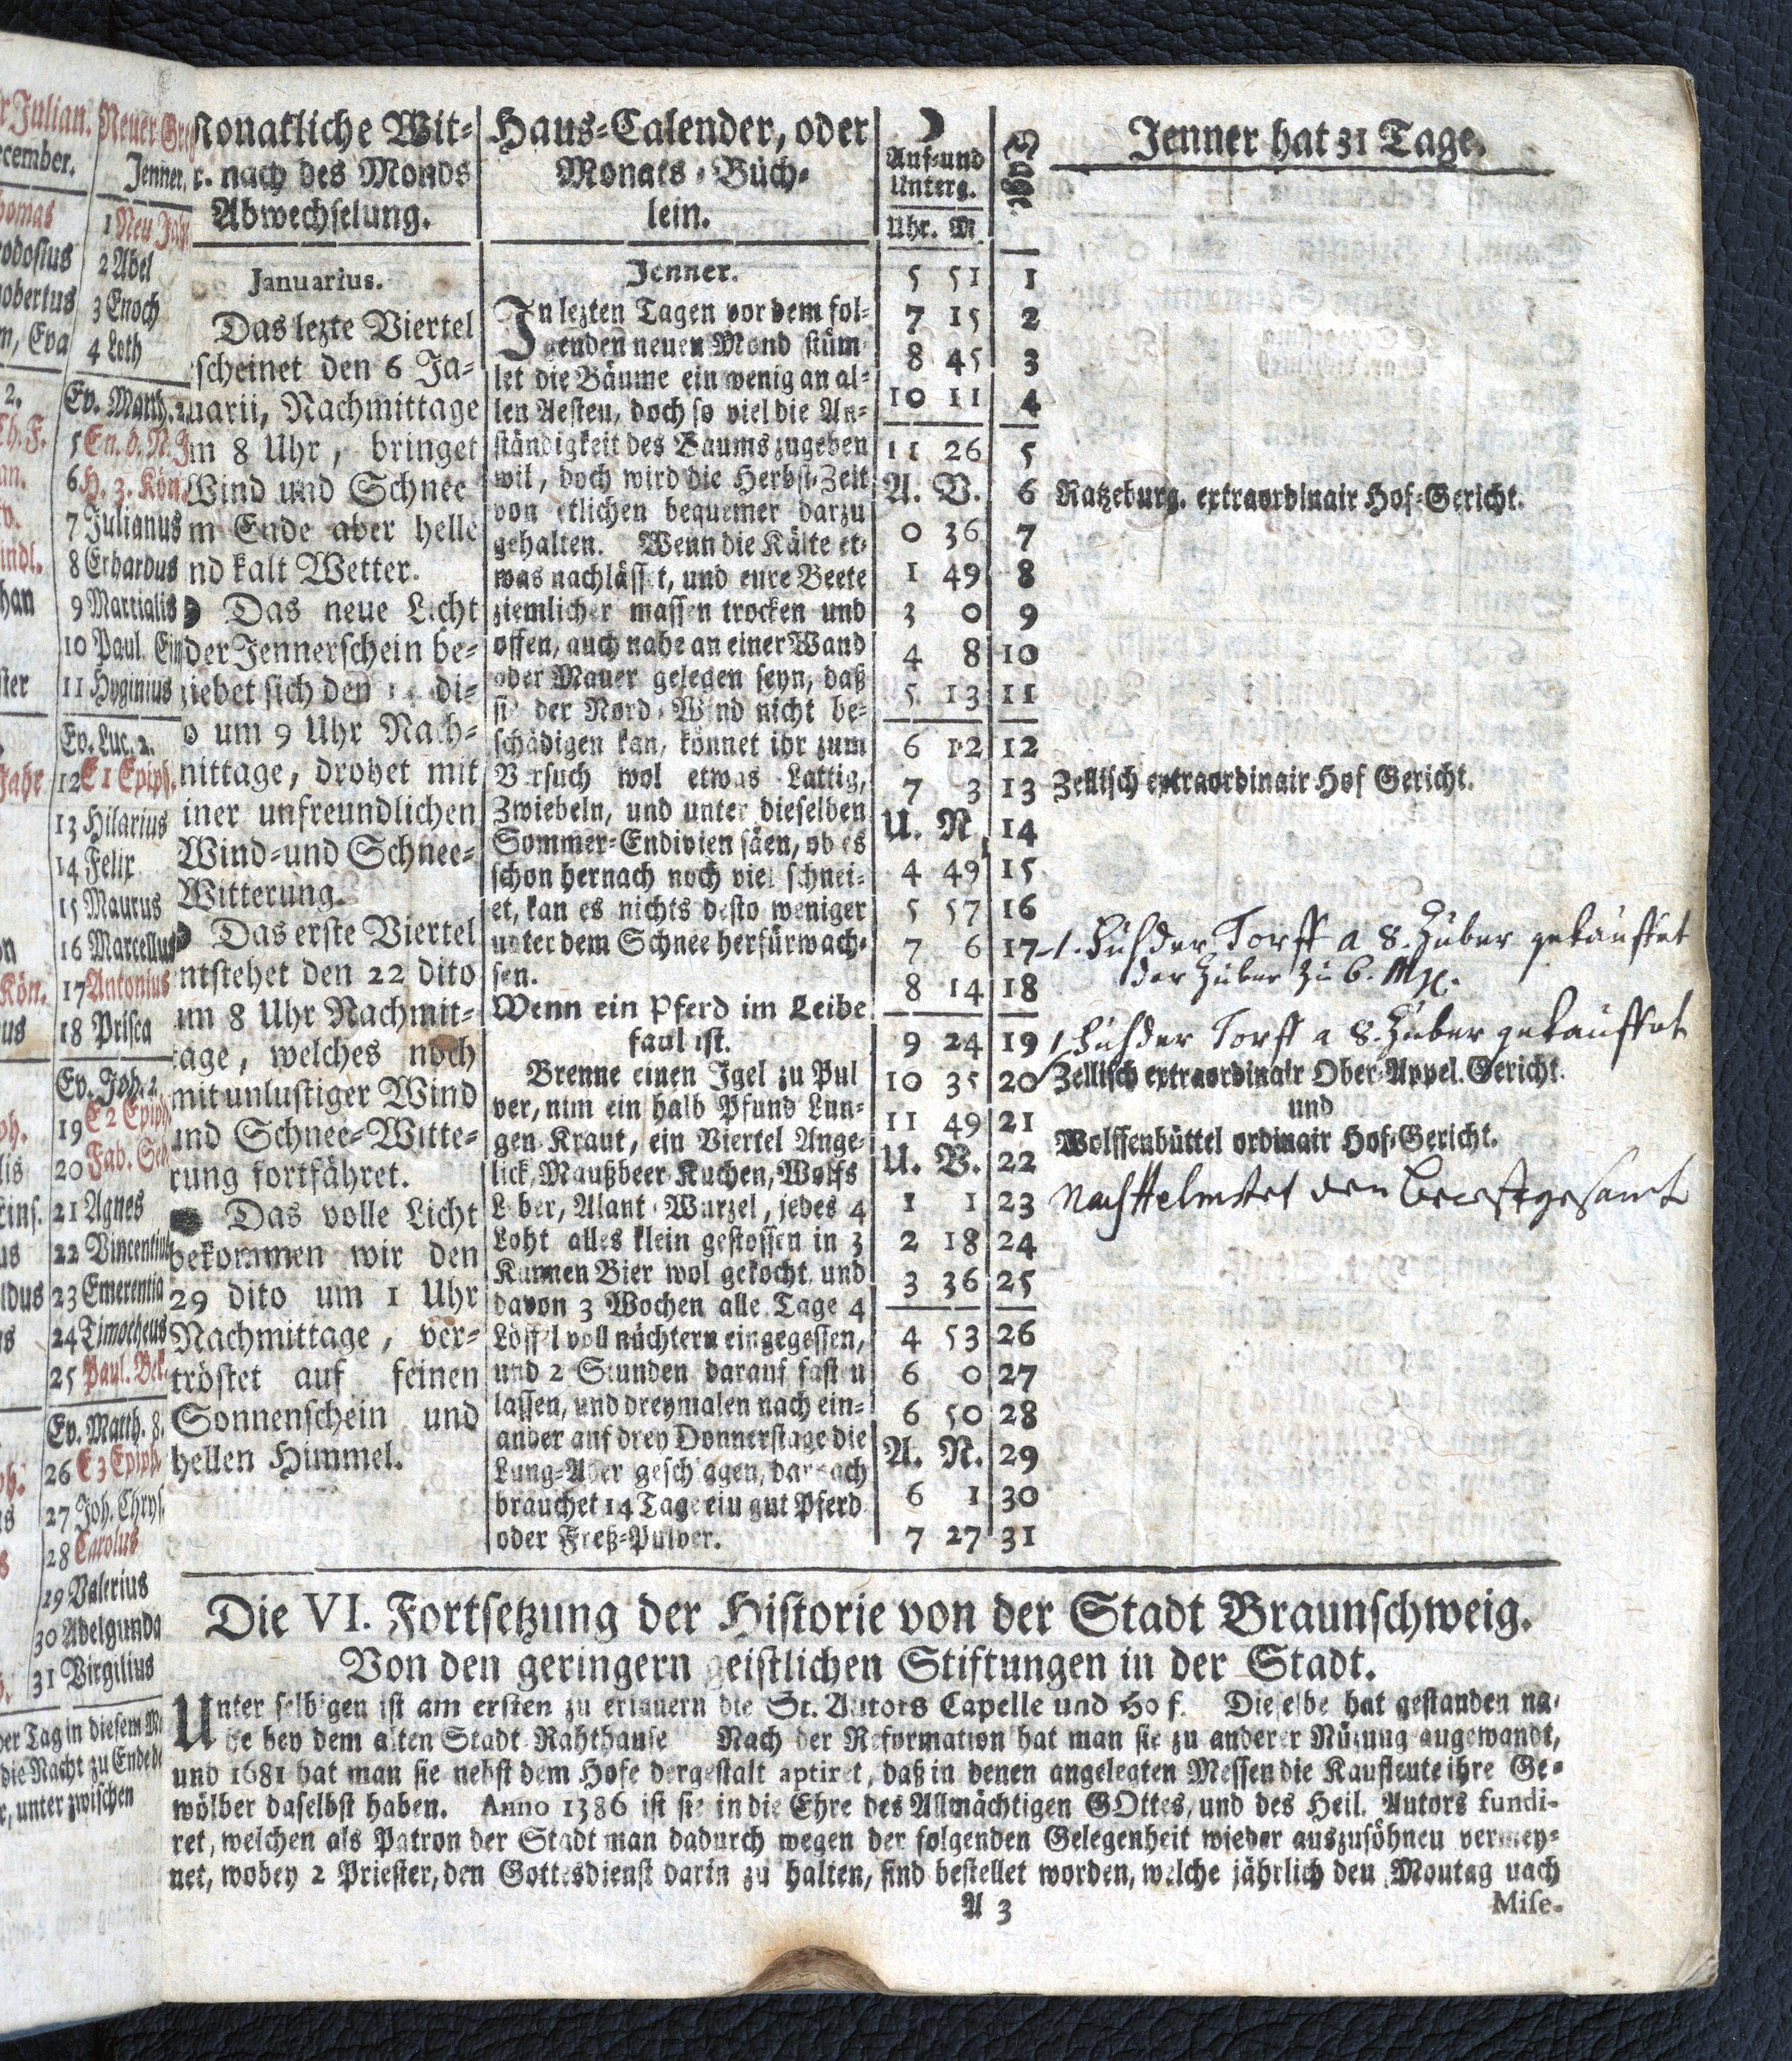 r Julian.
ecember.
homas
eodosius
nobertus
m, Eva
2.
Th. F.
an.
indl.
han
ster
Jahr
on
Kön.
us
ph.
lis
ldus
Neuer Gre
Jenner.
1 Neu Jah
2 Abel
3 Enoch
4 Loth
Ev. Matth. 2.
5 En. d. N. J
6 H. 3. Kön.
7 Julianus
8 Erhardus
9 Martialis
10 Paul. Ein
11 Hyginius
Ev. Luc. 2.
12 E 1 Epiph.
13 Hilarius
14 Felix
15 Maurus
16 Marcellus
17 Antonius
18 Prisca
Ev. Joh. 2.
19 E 2 Epiph
20 Fab. Seb
21 Agnes
22 Vincentius
23 Emerentia
24 Timotheus
25 Paul. Bek.
Ev. Matth. 8.
26 E 3 Epiph.
27 Joh. Chrys.
28 Carolus
29 Valerius
30 Adelgunda
31 Virgilius
her Tag in diesem M
die Nacht zu Ende de
r, unter zwischen
Monatliche Wit-
r. nach des Monds
Abwechselung.
Januarius.
Das lezte Viertel
scheinet den 6 Ja-
nuarii, Nachmittage
m 8 Uhr, bringet
Wind und Schnee
m Ende aber helle
nd kalt Wetter.
Das neue Licht
der Jennerschein be-
giebet sich den di-
o um 9 Uhr Nach-
mittage, drohet mit
iner unfreundlichen
Wind-und Schnee-
Witterung.
Das erste Viertel
ntstehet den 22 dito
um 8 Uhr Nachmit-
tage, welches noch
mit unlustiger Wind
und Schnee-Witte-
rung fortfähret.
Das volle Licht
bekommen wir den
29 dito um 1 Uhr
Nachmittage, ver-
tröstet auf feinen
Sonnenschein und
hellen Himmel.
Haus-Calender, oder
Monats-Büch-
lein.
Jenner.
In lezten Tagen vor dem fol-
genden neuen Mond stüm-
let die Bäume ein wenig an al-
len Aesten, doch so viel die An-
ständigkeit des Baums zugeben
wil, doch wird die Herbst-Zeit
von etlichen bequemer darzu
gehalten. Wenn die Kälte et-
was nachlässet, und eure Beete
ziemlicher massen trocken und
offen, auch nahe an einer Wand
oder Mauer gelegen seyn, daß
sie der Nord-Wind nicht be-
schädigen kan, könnet ihr zum
Versuch wol etwas Lattig,
Zwiebeln, und unter dieselben
Sommer-Endivien säen, ob es
schon hernach noch viel schnei-
et, kan es nichts desto weniger
unter dem Schnee herfürwach-
sen.
Wenn ein Pferd im Leibe
faul ist.
Brenne einen Igel zu Pul
ver, nim ein halb Pfund Lun-
gen-Kraut, ein Viertel Ange-
lick, Maußbeer-Kuchen, Wolfs
Leber, Alant-Wurzel, jedes 4
Loht alles klein gestossen in 3
Kannen Bier wol gekocht, und
davon 3 Wochen alle Tage 4
Löffel voll nüchtern eingegessen,
und 2 Stunden darauf fasten
lassen, und dreymalen nach ein-
ander auf drey Donnerstage die
Lung-Ader geschlagen, darnach
brauchet 14 Tage ein gut Pferd-
oder Freß-Pulver.
Auf-und
Unterg.
Uhr. M
5 51 1
7 15 2
8 45 3
10 11 4
11 26 5
A. V. 6 Ratzeburg. extraordinair Hof-Gericht.
0 36 7
1 49 8
3 0 9
4 8 10
5 13 11
6 12 12
7 3 13 Zellisch extraordinair Hof Gericht.
U. N. 14
4 49 15
5 57 16
7 6 17
8 14 18
9 24 19
10 35 20 Zellisch extraordinair Ober-Appel. Gericht.
11 49 21 und
U. V. 22 Wolffenbüttel ordinair Hof-Gericht.
1 1 23
2 18 24
3 36 25
4 53 26
6 0 27
6 50 28
A. N. 29
6 1 30
7 27 31
Jenner hat 31 Tage.
1. Fuhder Torff a 8. Zuber gekauffet
der Zuber zu 6. Mg.
1 Fuhder Torff a 8. Zuber gekauffet
Nach Helmstet den
Die VI. Fortsetzung der Historie von der Stadt Braunschweig.
Von den geringern geistlichen Stiftungen in der Stadt.
Unter selbigen ist am ersten zu erinnern die St. Autors Capelle und Hof. Dieselbe hat gestanden na-
he bey dem alten Stadt-Rahthause Nach der Reformation hat man sie zu anderer Nüzung angewandt,
und 1681 hat man sie nebst dem Hofe dergestalt aptiret, daß in denen angelegten Messen die Kaufleute ihre Ge-
wölber daselbst haben. Anno 1386 ist sie in die Ehre des Allmächtigen GOttes, und des Heil. Autors fundi-
ret, welchen als Patron der Stadt man dadurch wegen der folgenden Gelegenheit wieder auszusöhnen vermey-
net, wobey 2 Priester, den Gottesdienst darin zu halten, sind bestellet worden, welche jährlich den Montag nach
A 3
Mise-